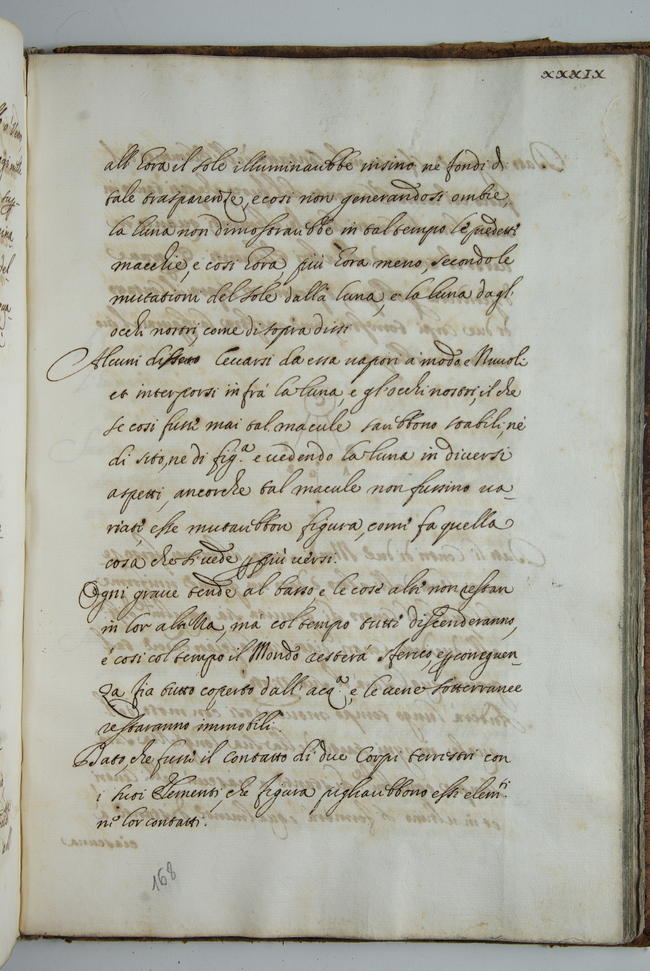 XXXIX
all'hora il sole illuminarebbe insino ne fondi d
tale trasparenze, e così non generandosi ombre
la luna non dimostrarebbe in tal tempo le predette
macchie, e così hora più hora meno, secondo le
mutationi del sole dalla luna, e la luna dagl'
occhi nostri, come di sopra dissi
Alcuni dissero leccarsi da essa vapori a modo e Nuvoli
et interporsi infrà la luna, e gl'occhi nostri, il che
se così fusse mai tal macule sarebbono stabili, nè
di sito, ne di fig.ª e vedendo la luna in diversi
aspetti, ancorche tal macule non fussino va-
riate esse mutarebbon figura, come fa quella
cosa che si vede p più versi.
Ogni grave tende al basso e le cose alte non restan
in lor altezza, mà col tempo tutte discenderanno,
e così col tempo il Mondo resterà sferico, e p conseguen-
za fia tutto coperto dall'acq.ª, e le vene sotterranee
restaranno immobili.
Dato, che fussi il contatto di due Corpi terrestri con
i suoi Elementi, che figura pigliarebbono essi elem.ti
ne lor contatti.
168